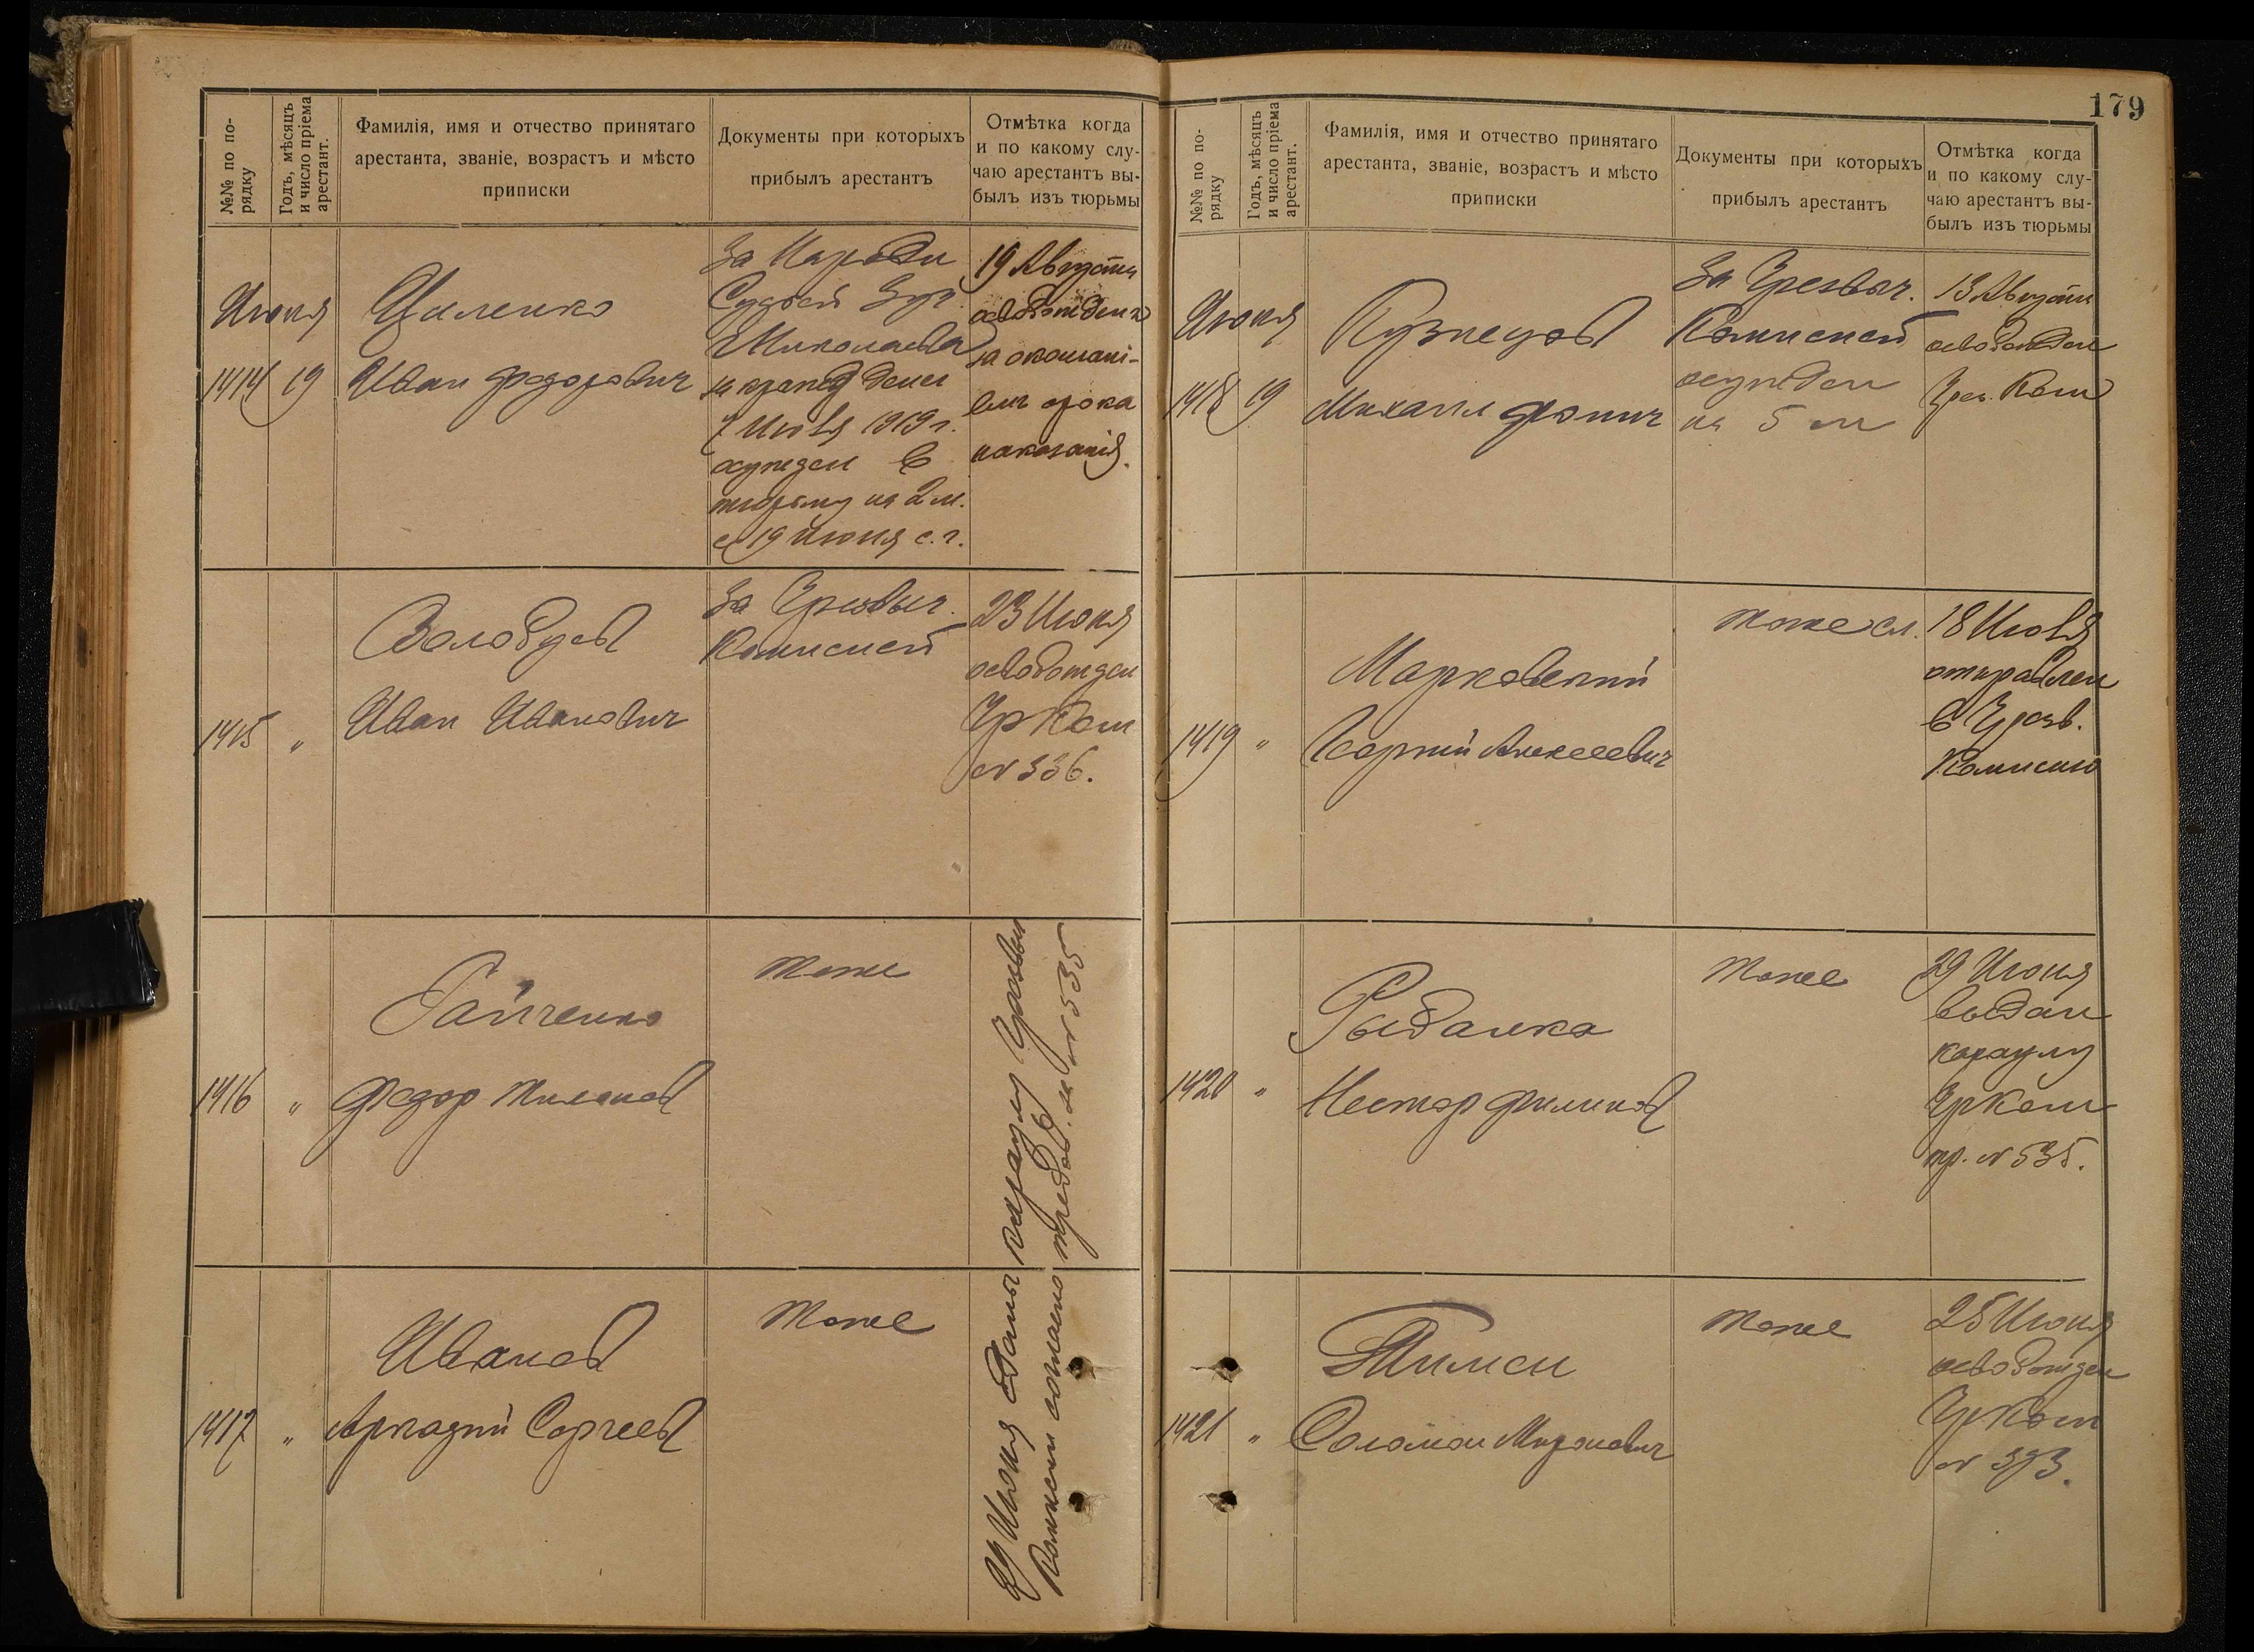 №№ по по-
рядку
Годъ, мѣсяцъ
и число пріема
арестант.
Фамилія, имя и отчество принятаго
арестанта, званіе, возрастъ и мѣсто
приписки
Документы при которыхъ
прибылъ арестантъ
Отмѣтка когда
и по какому слу-
чаю арестантъ вы-
былъ изъ тюрьмы
Июня
1414 19
Циленко
Иван Федорович
За Народн
Судьей
Николаева
за кражу денег
7 Июля 1919 г.
осужден в
тюрьму на 2 м.
с 19 Июня с.г.
19 Августа
освобожден
за окончані-
ем срока
наказанія.
1415 "
Иван Иванович
За Чрезвыч.
Комиссией
23 Июня
освобожден
ЧрКом
№ 336.
1416 "
Гайченко
Федор
тоже
1417 "
Иванов
Аркадий Сергеев
тоже
29 Июня сданы караулу Чрезвыч
Комиссии согласно требов. за № 535
179
№№ по по-
рядку
Годъ, мѣсяцъ
и число пріема
арестант.
Фамилія, имя и отчество принятаго
арестанта, званіе, возрастъ и мѣсто
приписки
Документы при которыхъ
прибылъ арестантъ
Отмѣтка когда
и по какому слу-
чаю арестантъ вы-
былъ изъ тюрьмы
Июня
1418 19
Кузнецов
Михаил Фомич
За Чрезвыч.
Комиссией
осужден
на 5 м
13 Августа
освобожден
Чрез. Ком
1419 "
Марковский
Георгий Алексеевич
тоже сл.
18 Июля
отправлен
в Чрезв.
Комиссию
1420 "
Рыбалка
Нестор Филипов
тоже
29 Июня
выдан
караулу
ЧрКом
тр. № 535.
1421 "
Соломон Миронович
тоже
25 Июня
освобожден
ЧрКом
№ 393.